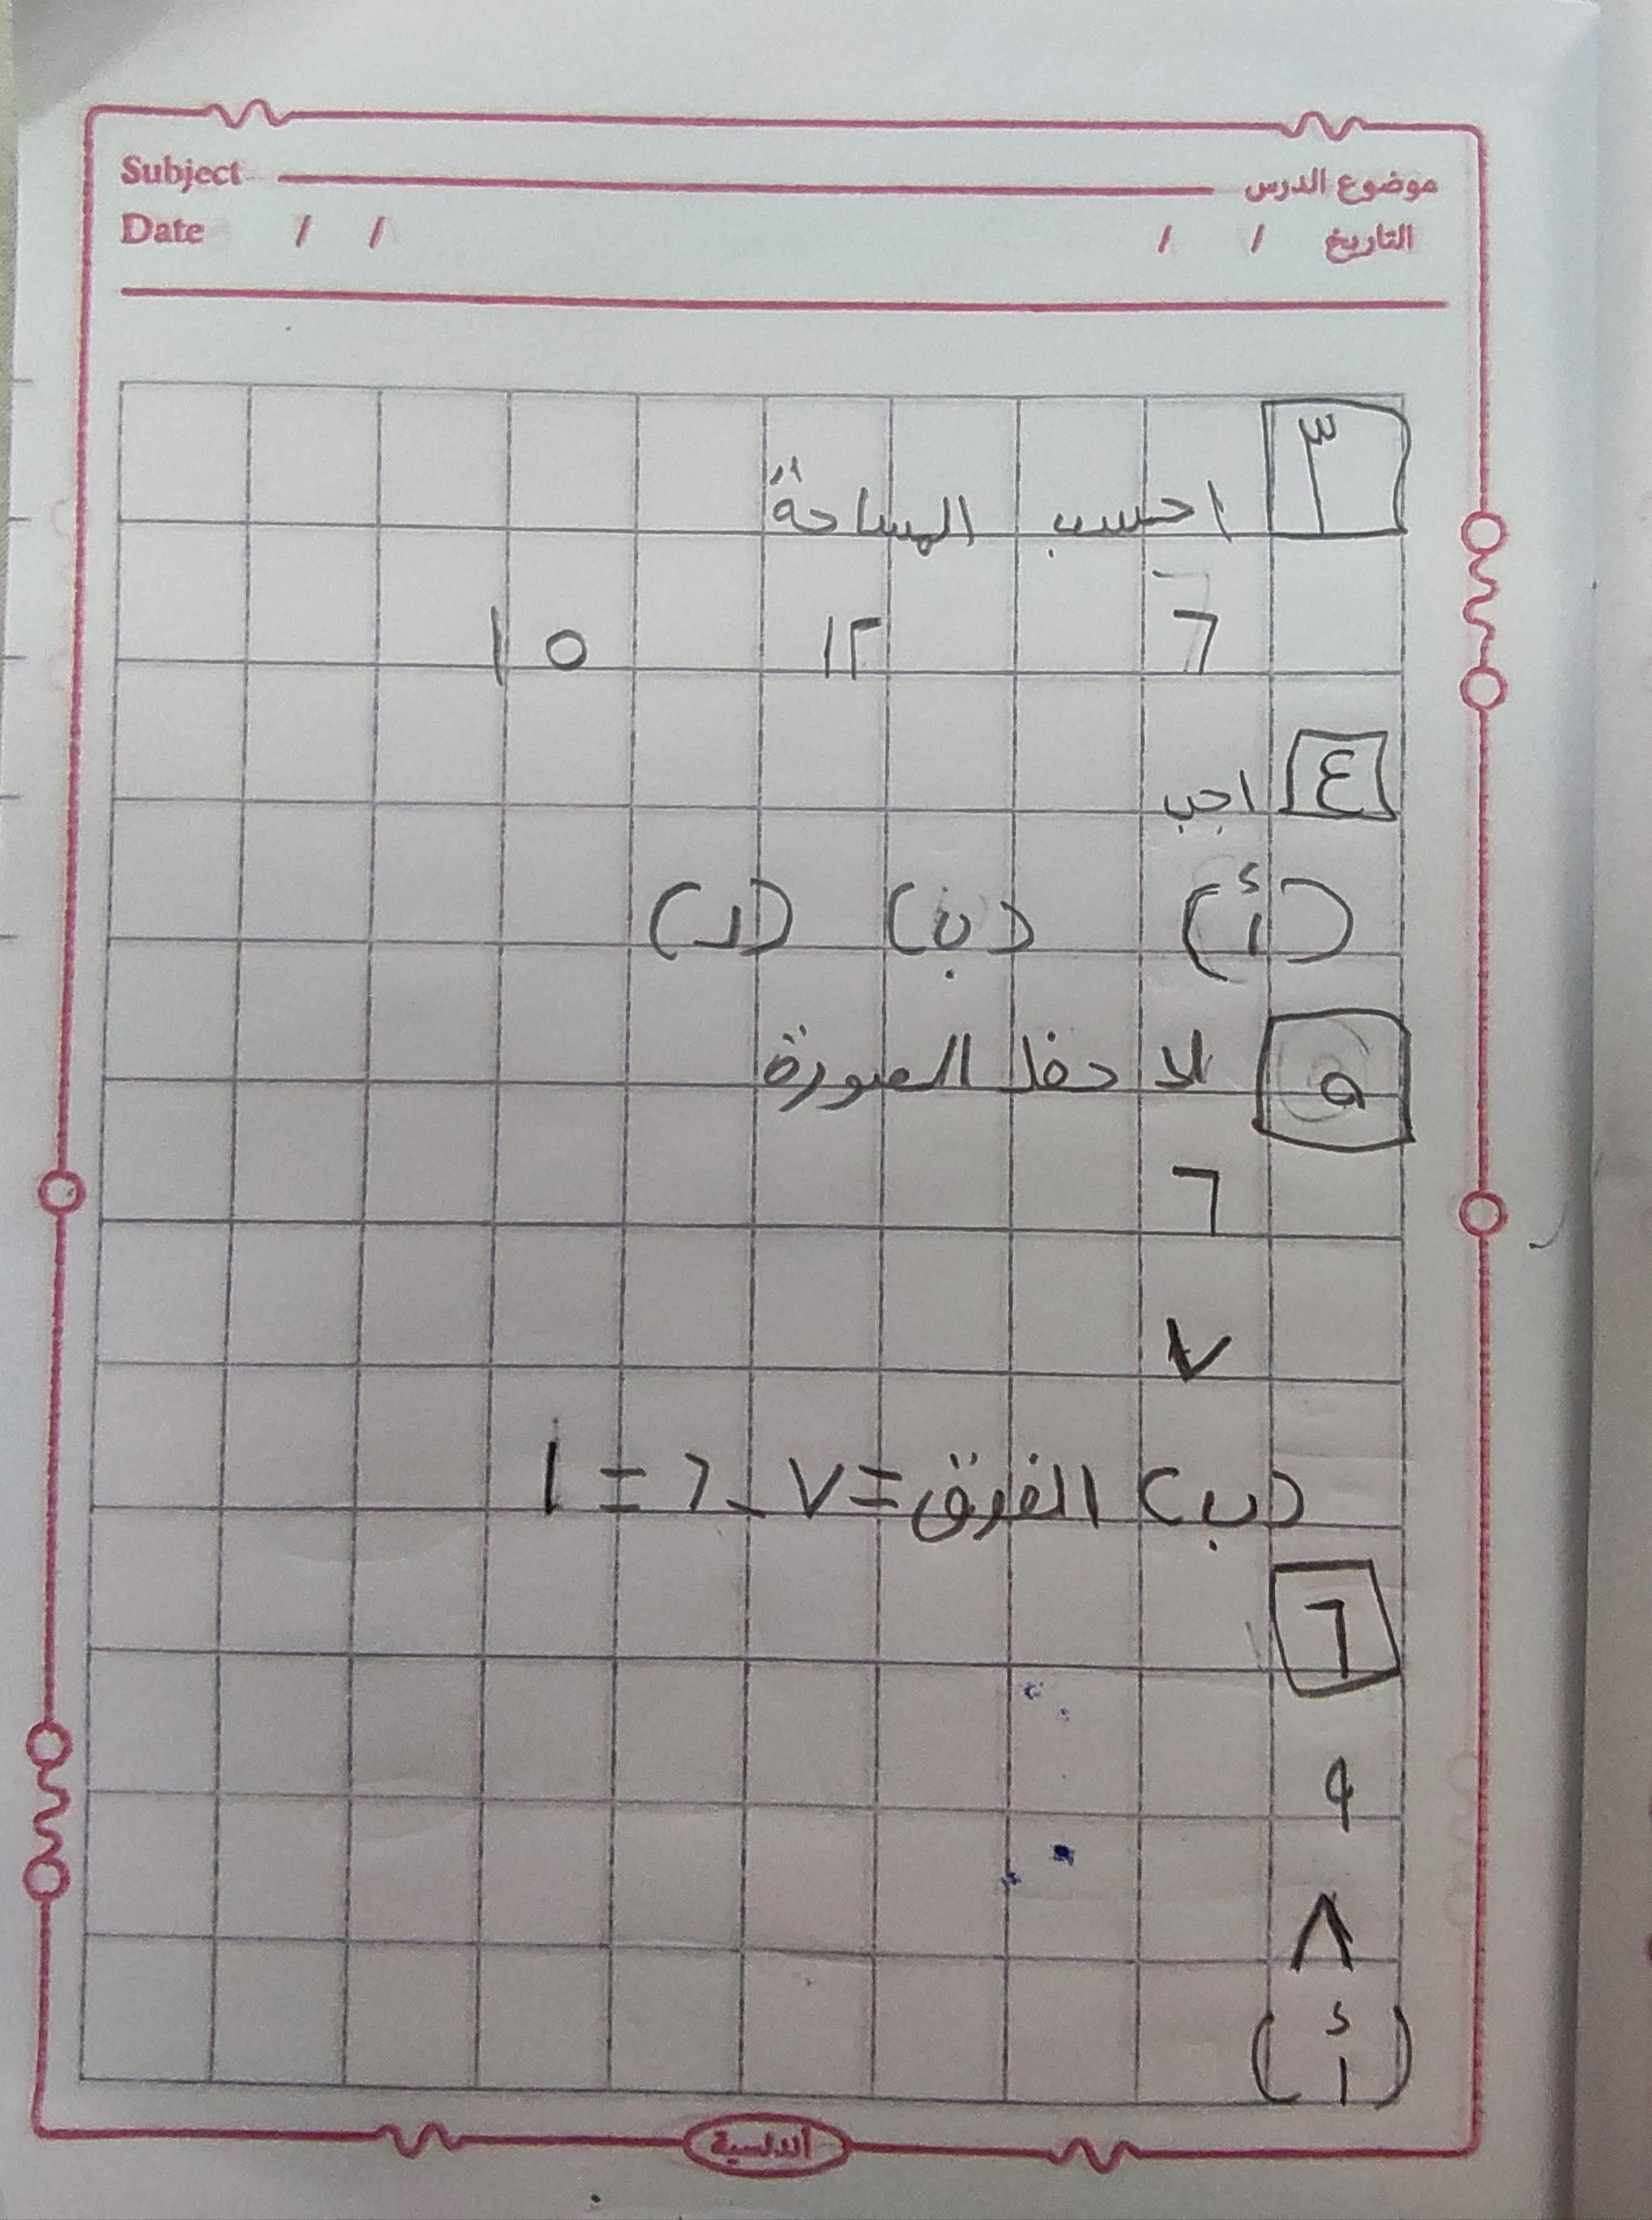 Subject موضوع الدرس
Date / / التاريخ / /
٣ احسب المساحة
٦ ١٢ ١٥
٤ اجب
(أ) (ب) (د)
٥ لا حظ الصورة
٦
٧
(ب) الفرق = ٧ - ٦ = ١
٦
٩
٨
(أ)
أندلسية